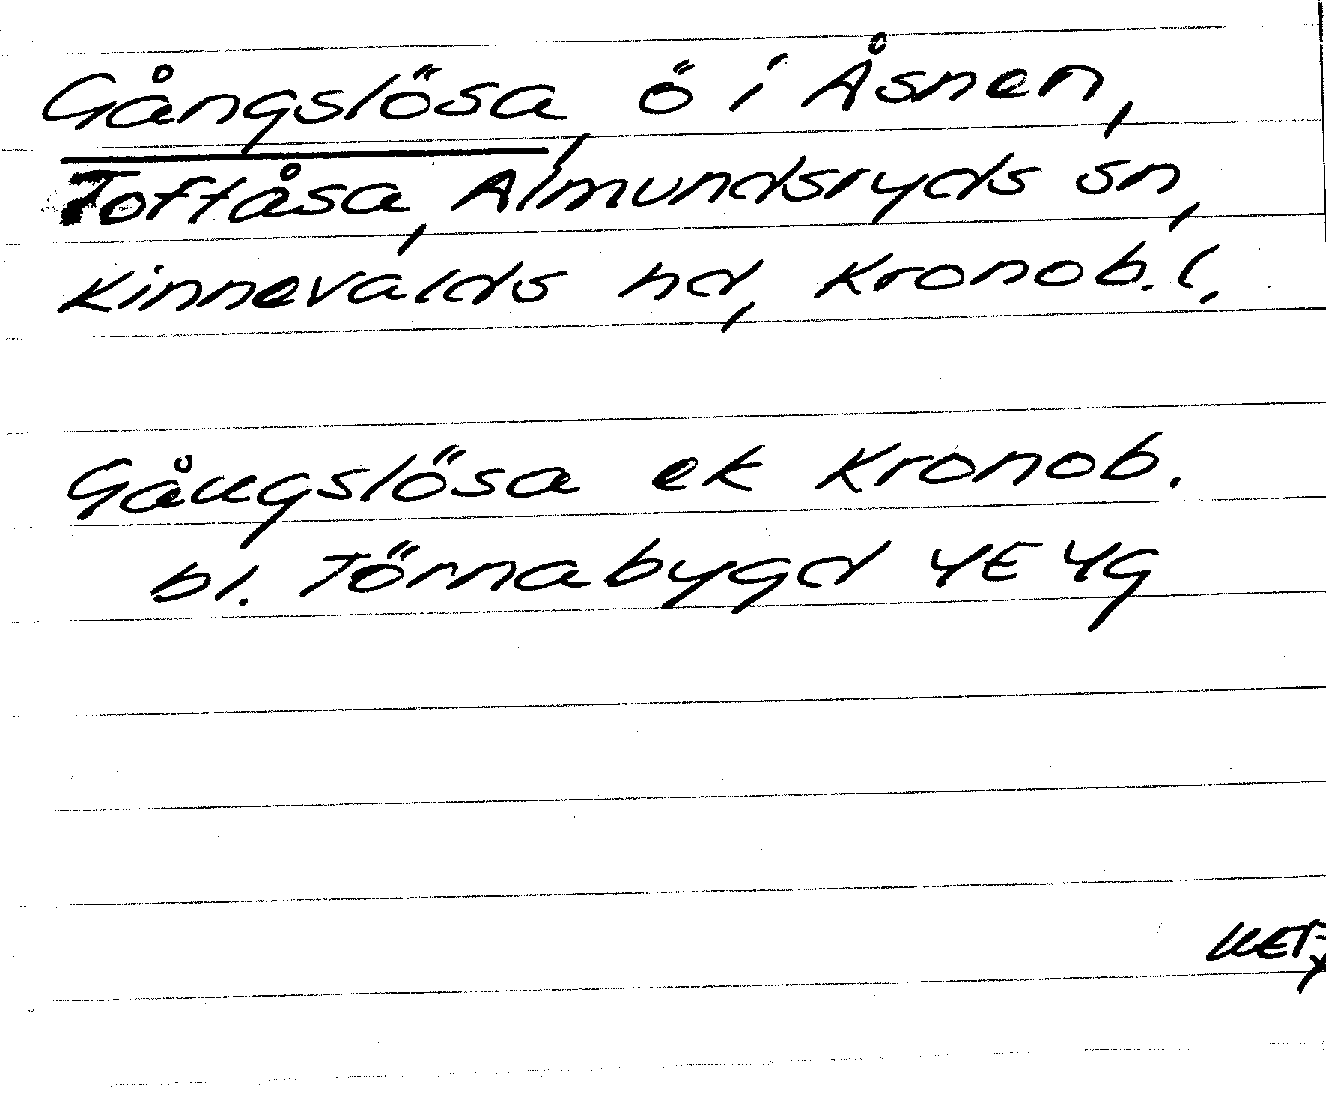 Gångslösa, ö i Åsnen,
Toftåsa, Almundsryds sn,
Kinnevalds hd, Kronob. l.
Gångslösa ek Kronob.
bl. Törnabygd 4E 4g